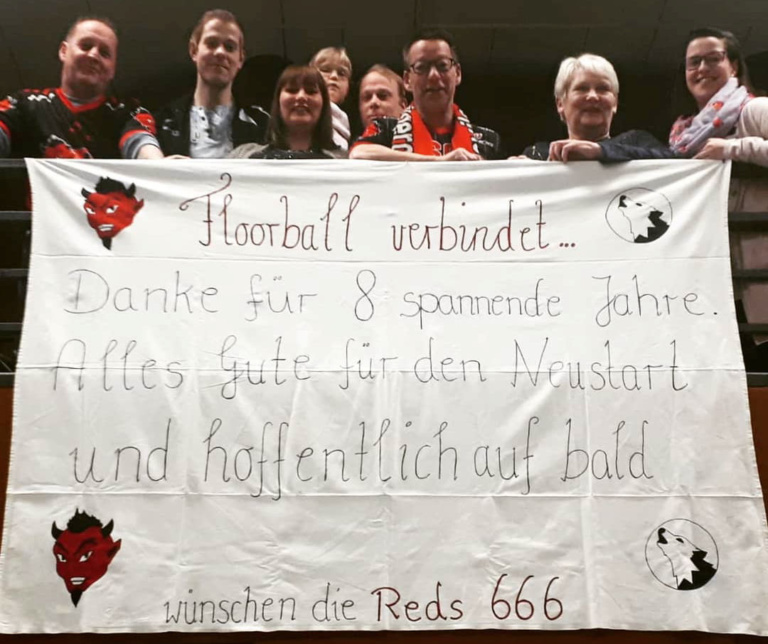 Floorball verbindet...
Danke für 8 spannende Jahre.
Alles Gute für den Neustart
und hoffentlich auf bald
wünschen die Reds 666